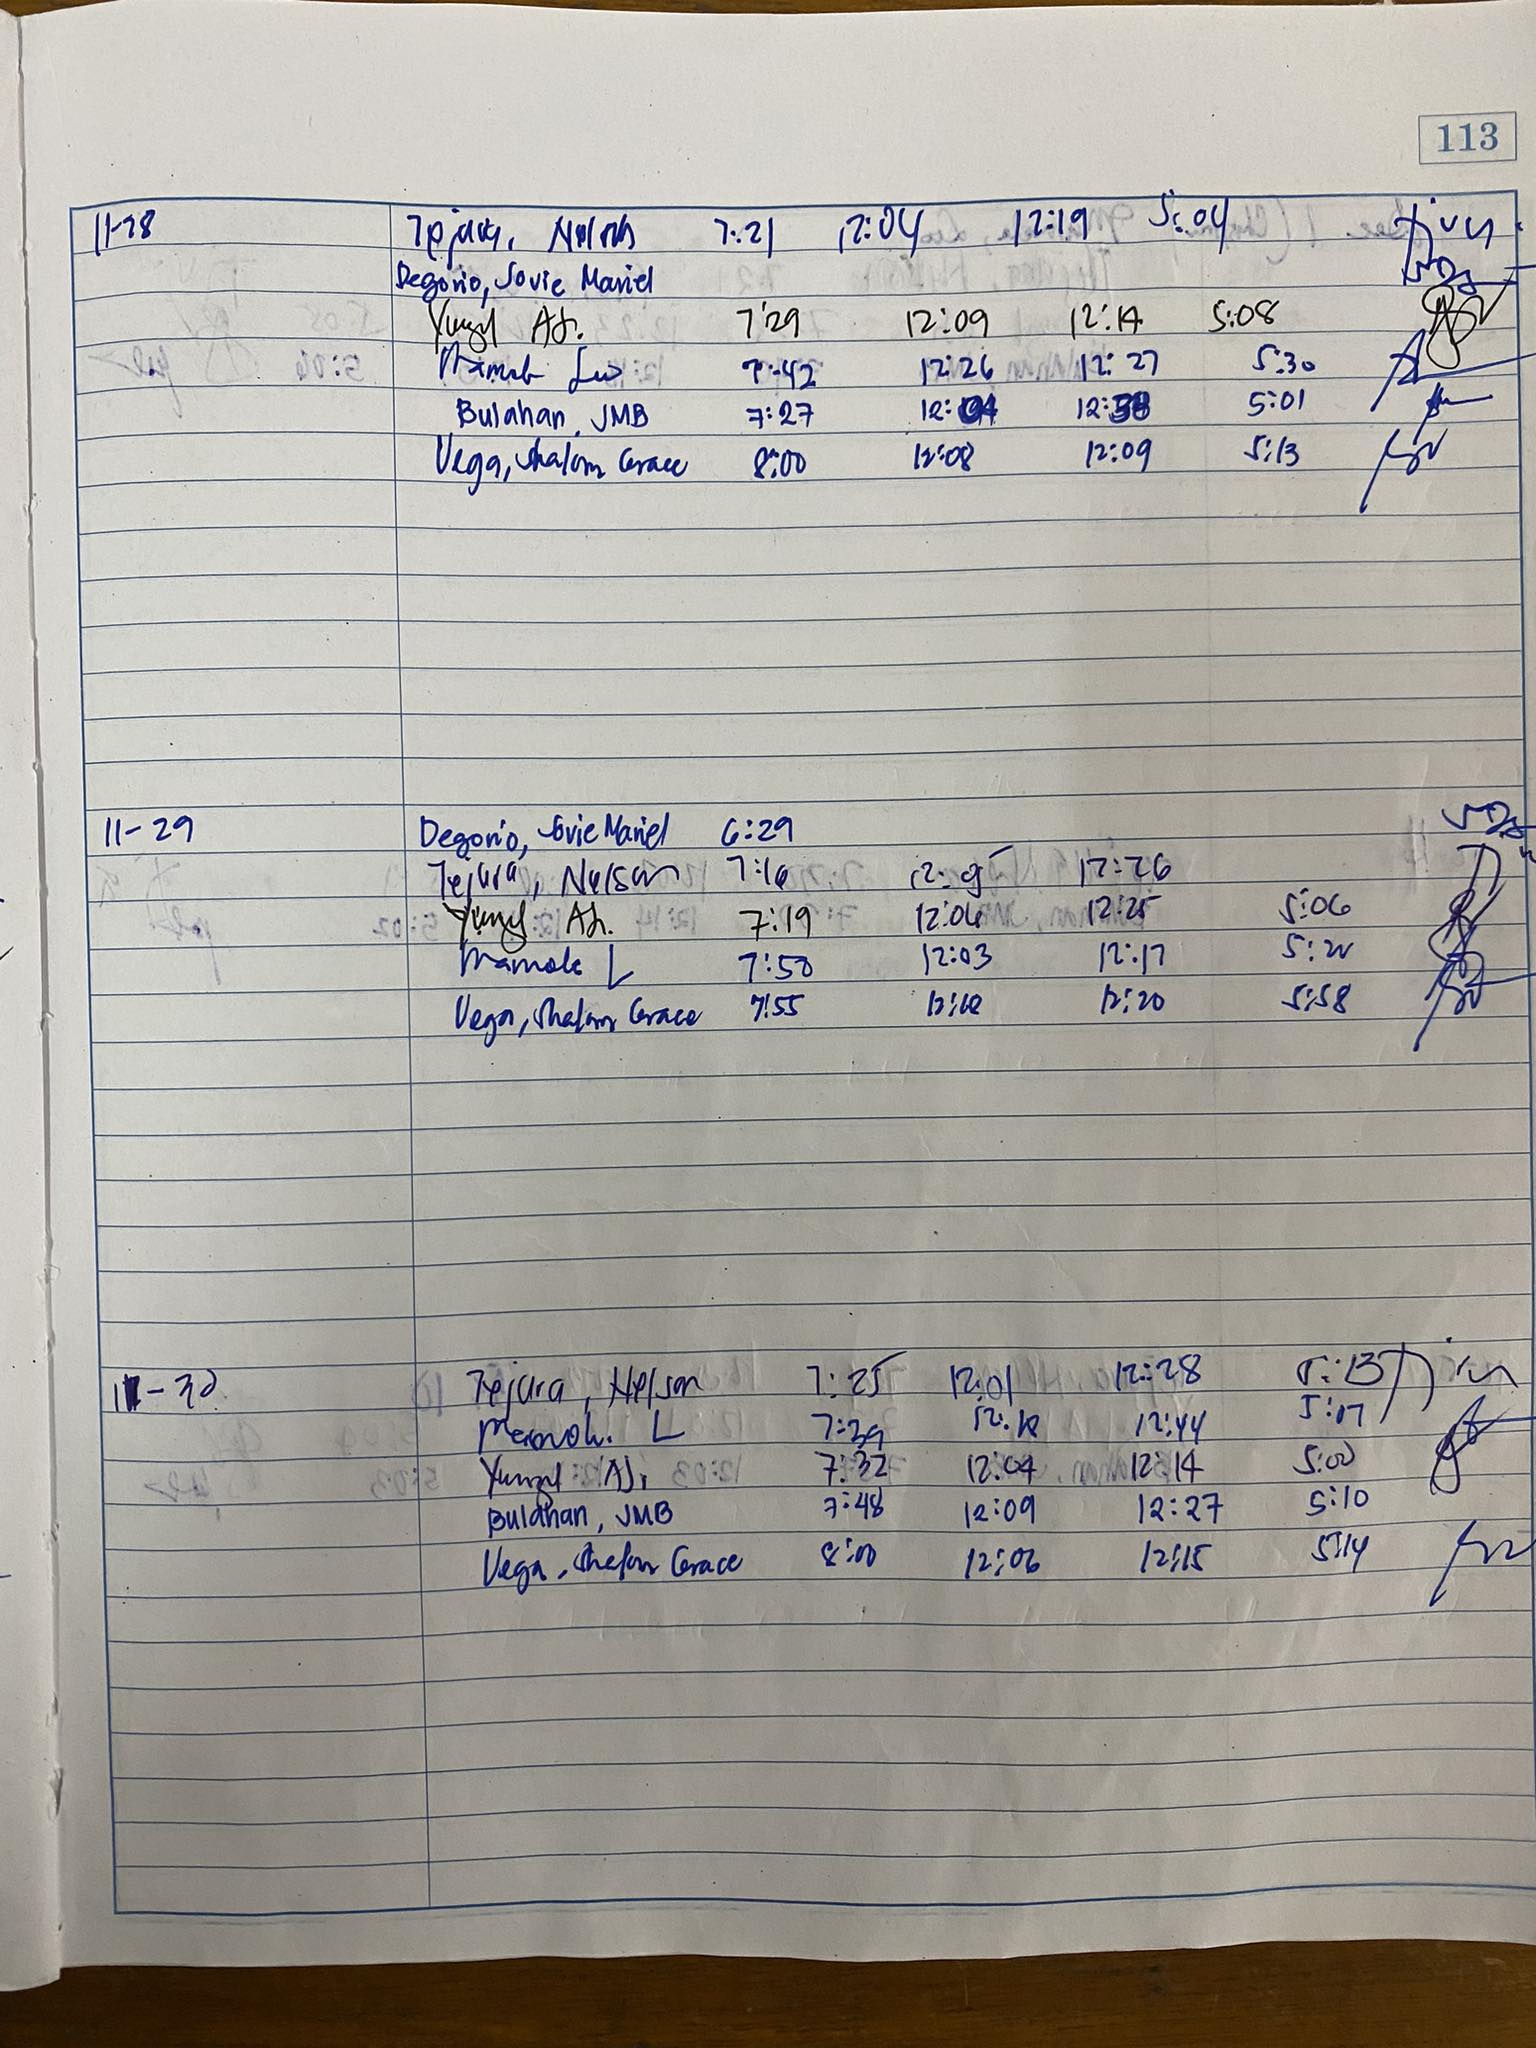 113
11-28 Tejura, Nelson 7:21 12:04 12:19 5:04
Degorio, Jovie Mariel
Yungl AJ. 7:29 12:09 12:14 5:08
Mamole Leo 7:42 12:26 12:27 5:30
Bulahan, JMB 7:27 12:04 12:38 5:01
Vega, Shalom Grace 8:00 12:08 12:09 5:13
11-29 Degorio, Jovie Mariel 6:29
Tejura, Nelson 7:16 12:05 12:26
Yungl AJ. 7:19 12:06 12:25 5:06
Mamole L 7:50 12:03 12:17
Vega, Shalom Grace 7:55 12:20 5:58
11-30 Tejura, Nelson 7:25 12:01 12:28 5:13
Mamole. L 7:29 12:18 12:44 5:07
Yungl AJ. 7:32 12:04 12:14 5:00
Bulahan, JMB 7:48 12:09 12:27 5:10
Vega, Shalom Grace 8:00 12:06 12:15 5:14